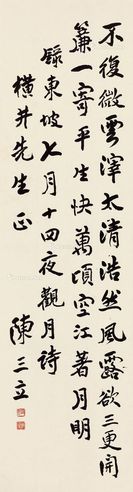 不復微雲滓太清浩然風露欲三更開
簾一寄平生快萬頃空江著月明
錄東坡七月十四夜觀月詩
橫井先生正
陳三立